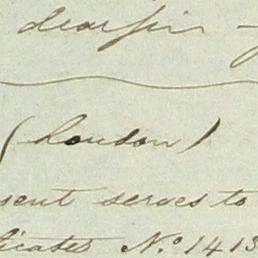 dear sir
(London)
sent serves to
licates No. 1413